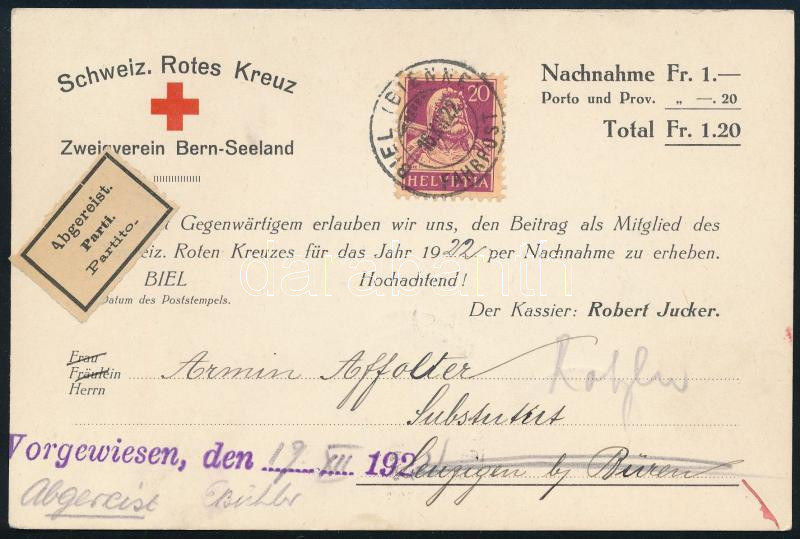 Schweiz. Rotes Kreuz
Zweigverein Bern-Seeland
BIEL (BIENNE)
FAHRPOST
20
HELVETIA
Nachnahme Fr. 1.—
Porto und Prov. „ —. 20
Total Fr. 1.20
Abgereist.
Parti.
Partito.
t Gegenwärtigem erlauben wir uns, den Beitrag als Mitglied des
eiz. Roten Kreuzes für das Jahr 1922 per Nachnahme zu erheben.
BIEL Hochachtend!
Datum des Poststempels.
Der Kassier: Robert Jucker.
darabanth
Frau
Fräulein
Herrn
Armin Affolter
Substitut
Vorgewiesen, den 19. XII 192
Büren
Abgereist Bühler